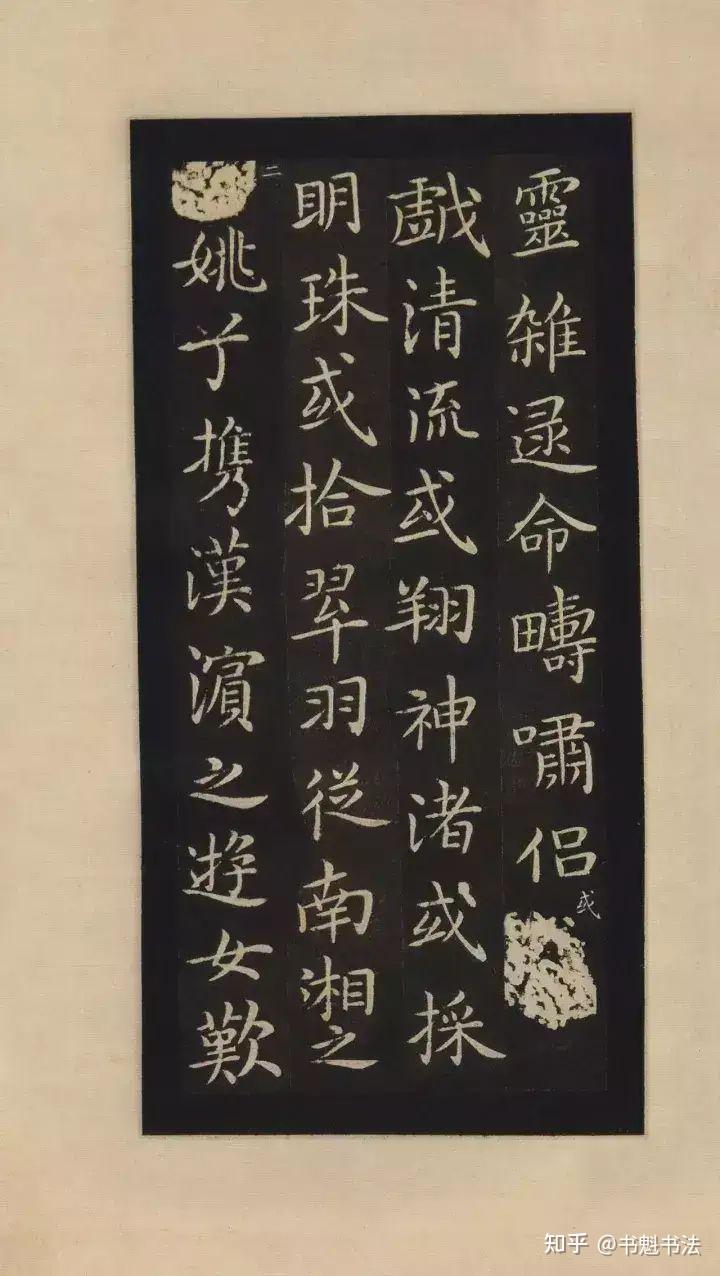 靈雜遝命疇嘯侶或
戲清流或翔神渚或採
明珠或拾翠羽從南湘之
二姚兮携漢濱之遊女歎
知乎 @书魁书法